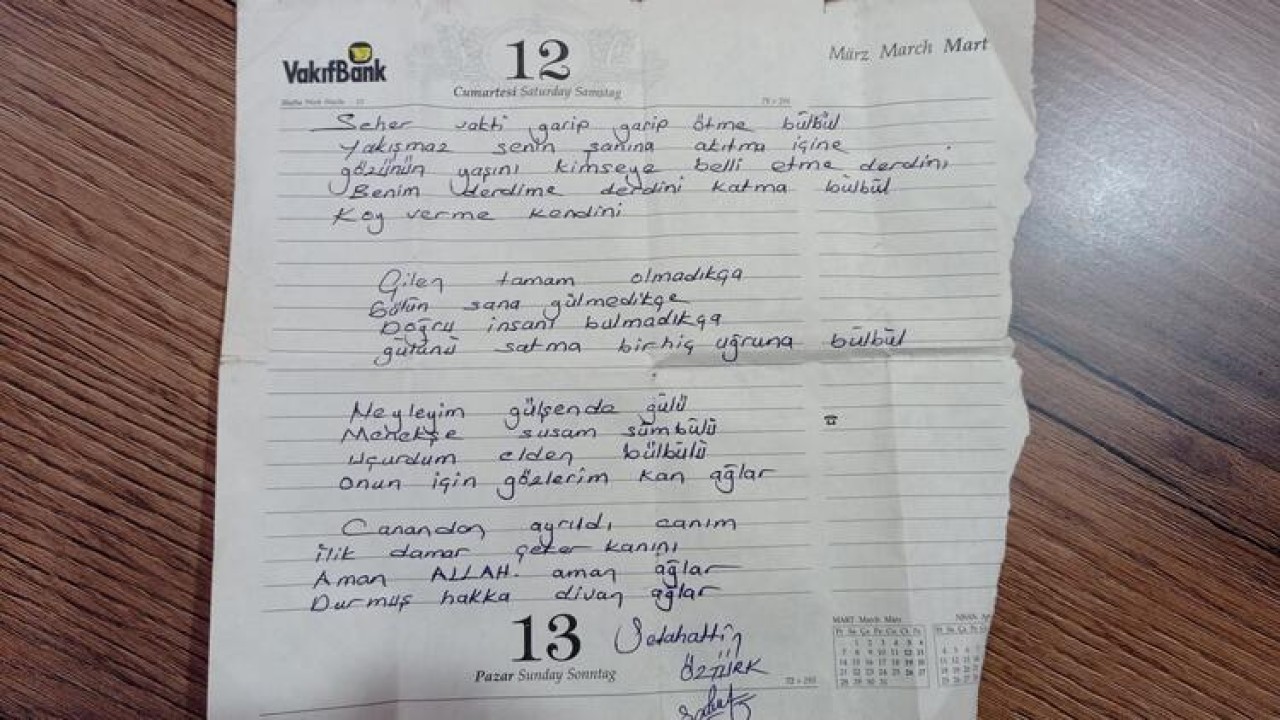 VakıfBank
12
Cumartesi Saturday Samstag
März March Mart
Seher vakti garip garip ötme bülbül
Yakışmaz senin şanına akıtma içine
gözünün yaşını kimseye belli etme derdini
Benim derdime derdini katma bülbül
Koy verme kendini
Çilen tamam olmadıkça
Gülün sana gülmedikçe
Doğru insanı bulmadıkça
gülünü satma birhiç uğruna bülbül
Neyleyim gülşende gülü
Menekşe susam sümbülü
Uçurdum elden bülbülü
Onun için gözlerim kan ağlar
Canandan ayrıldı canım
ilik damar çeker kanını
Aman ALLAH. aman ağlar
Durmuş hakka divan ağlar
13
Pazar Sunday Sonntag
Selahattin
ÖZTÜRK
MART March März